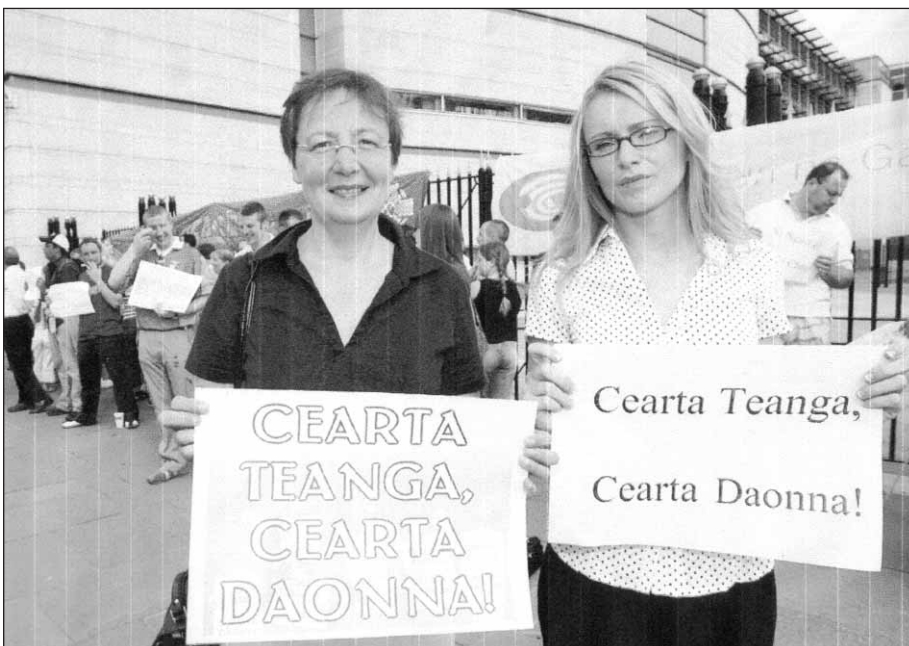 CEARTA
TEANGA,
CEARTA
DAONNA!
Cearta Teanga,
Cearta Daonna!